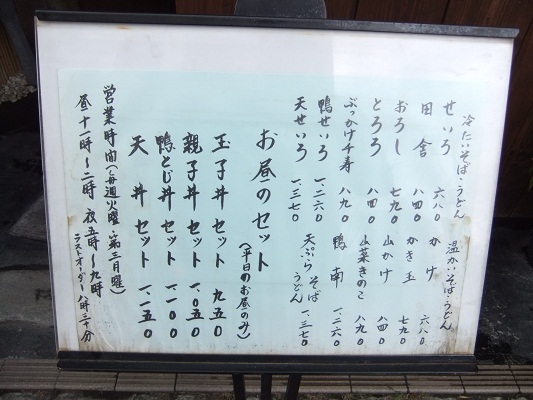 冷たいそば・うどん
せいろ 六八〇
田舎 八四〇
おろし 七九〇
とろろ 八四〇
ぶっかけ千寿 八九〇
鴨せいろ 一、二六〇
天せいろ 一、三七〇
温かいそば・うどん
かけ 六八〇
かき玉 七九〇
山かけ 八四〇
山菜きのこ 八九〇
鴨南 一、二六〇
天ぷら そば うどん 一、三七〇
お昼のセット (平日のお昼のみ)
玉子丼セット 九五〇
親子丼セット 一、〇五〇
鴨とじ丼セット 一、一〇〇
天丼セット 一、一五〇
営業時間
昼十一時〜二時 夜五時〜九時
ラストオーダー八時三十分